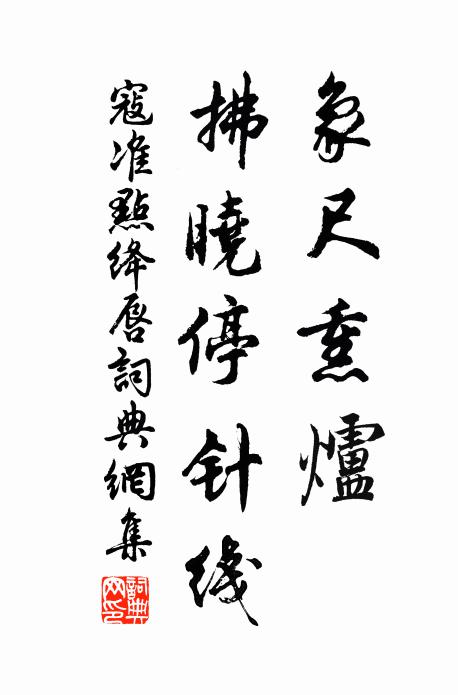 象尺熏爐
拂曉停针线
寇准點绛唇詞典網集
詞典网印